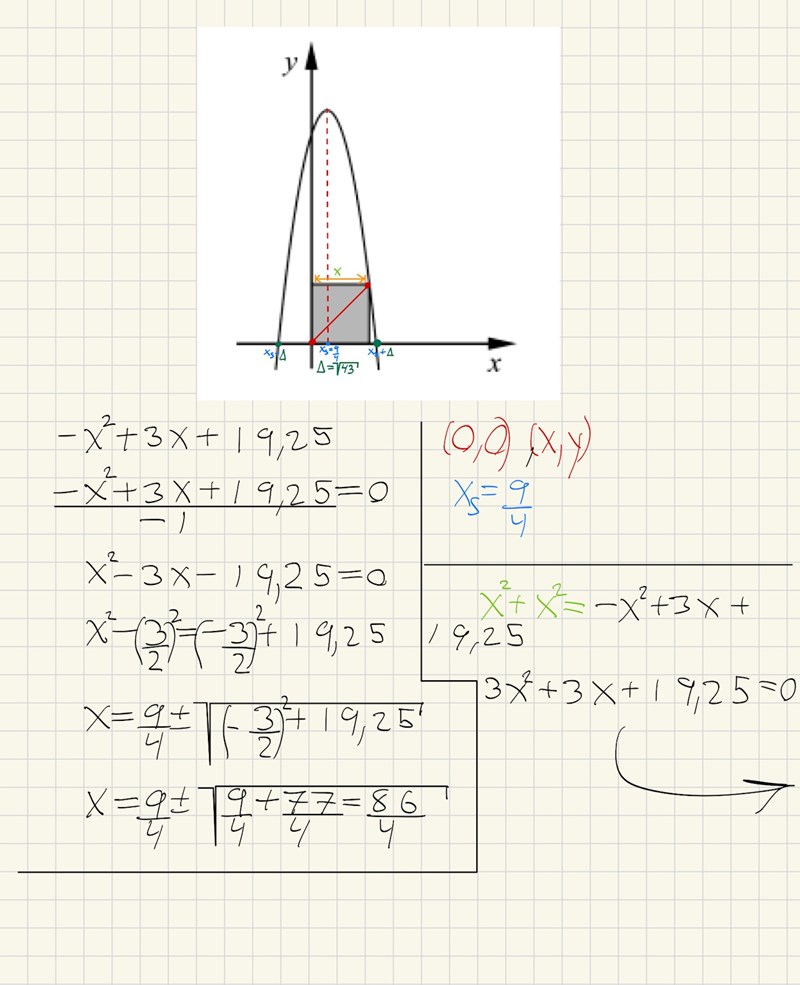 y
x
x_s-Δ
x_s=9/4
x_s+Δ
Δ=√43
x
-x²+3x+19,25
-x²+3x+19,25=0
-1
x²-3x-19,25=0
x²-(3/2)²=(-3/2)²+19,25
x=9/4±√((-3/2)²+19,25)
x=9/4±√(9/4+77/4=86/4)
(0,0),(x,y)
x_s=9/4
x²+x²=-x²+3x+
19,25
3x²+3x+19,25=0